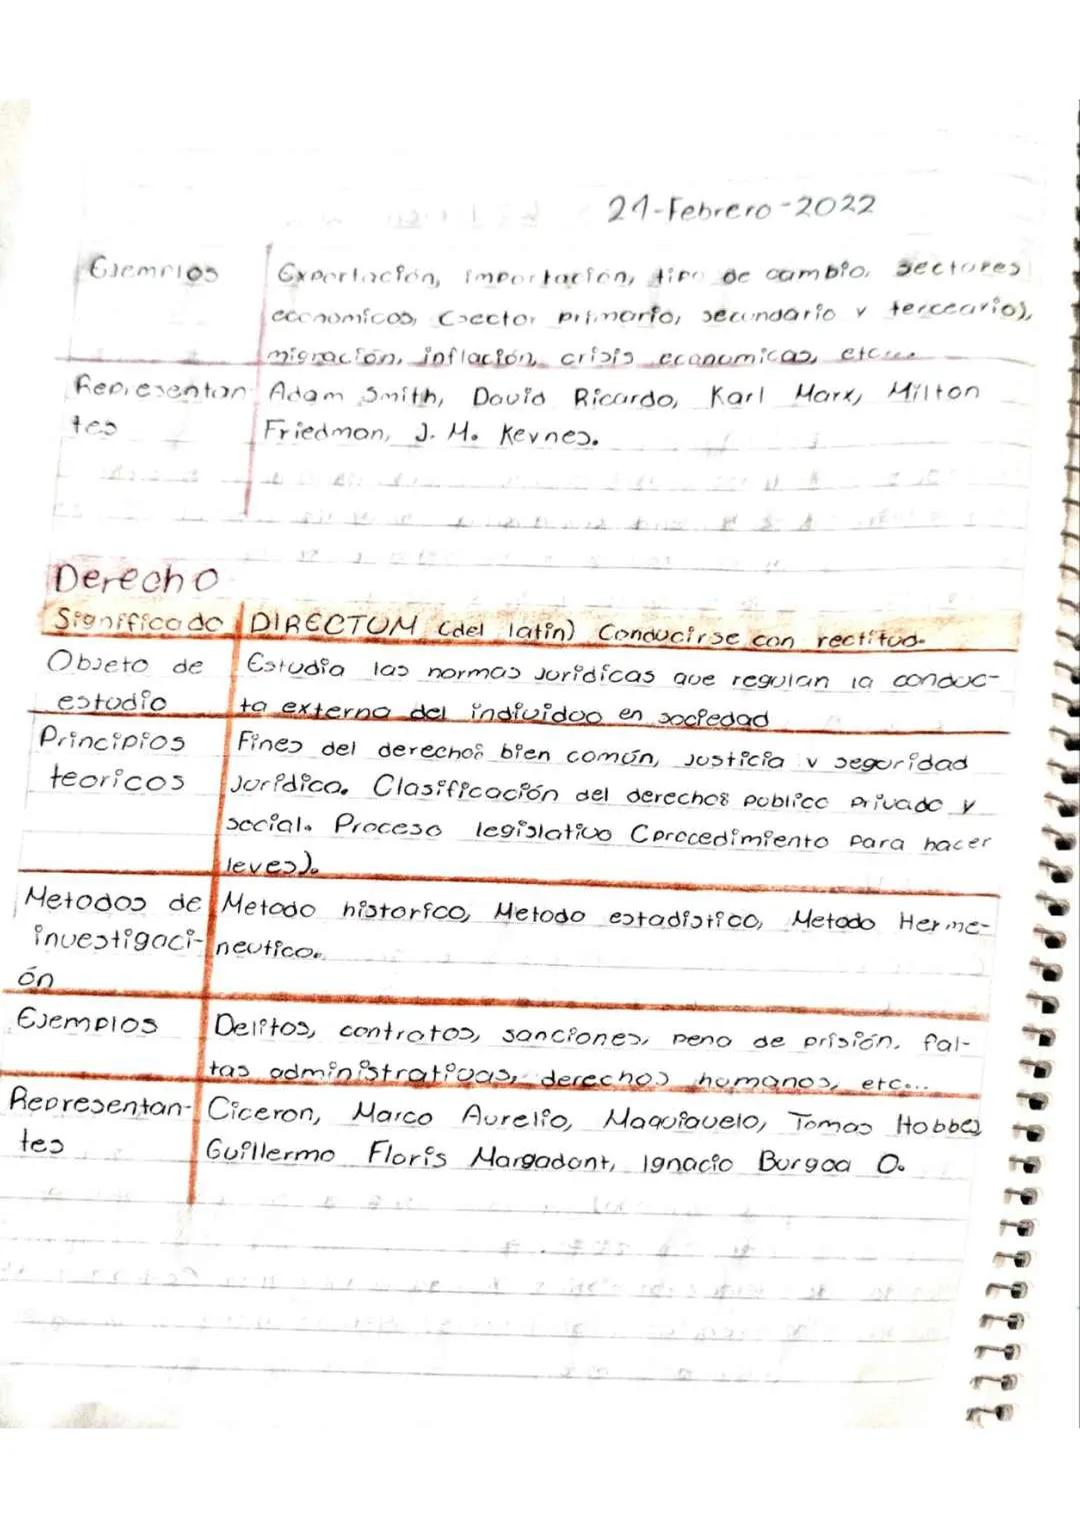 21-Febrero-2022
Ejemplos
Exportación, importación, tipo de cambio, sectores
economicos, (sector primario, secundario y terceario),
migración, inflación, crisis economicas, etc...
Representan
tes
Adam Smith, David Ricardo, Karl Marx, Milton
Friedman, J. M. Keynes.
Derecho
Significado DIRECTUM (del latin) Conducirse con rectitud.
Objeto de
estudio
Estudia las normas juridicas que regulan la conduc-
ta externa del individuo en sociedad
Principios
teoricos
Fines del derecho: bien común, justicia y seguridad
juridica. Clasificación del derecho: publico privado y
social. Proceso legislativo (procedimiento para hacer
leyes).
Metodos de
investigaci-
ón
Metodo historico, Metodo estadistico, Metodo Herme-
neutico.
Ejemplos
Delitos, contratos, sanciones, pena de prisión, fal-
tas administrativas, derechos humanos, etc...
Representan-
tes
Ciceron, Marco Aurelio, Maquiavelo, Tomas Hobbes
Guillermo Floris Margadant, Ignacio Burgoa O.